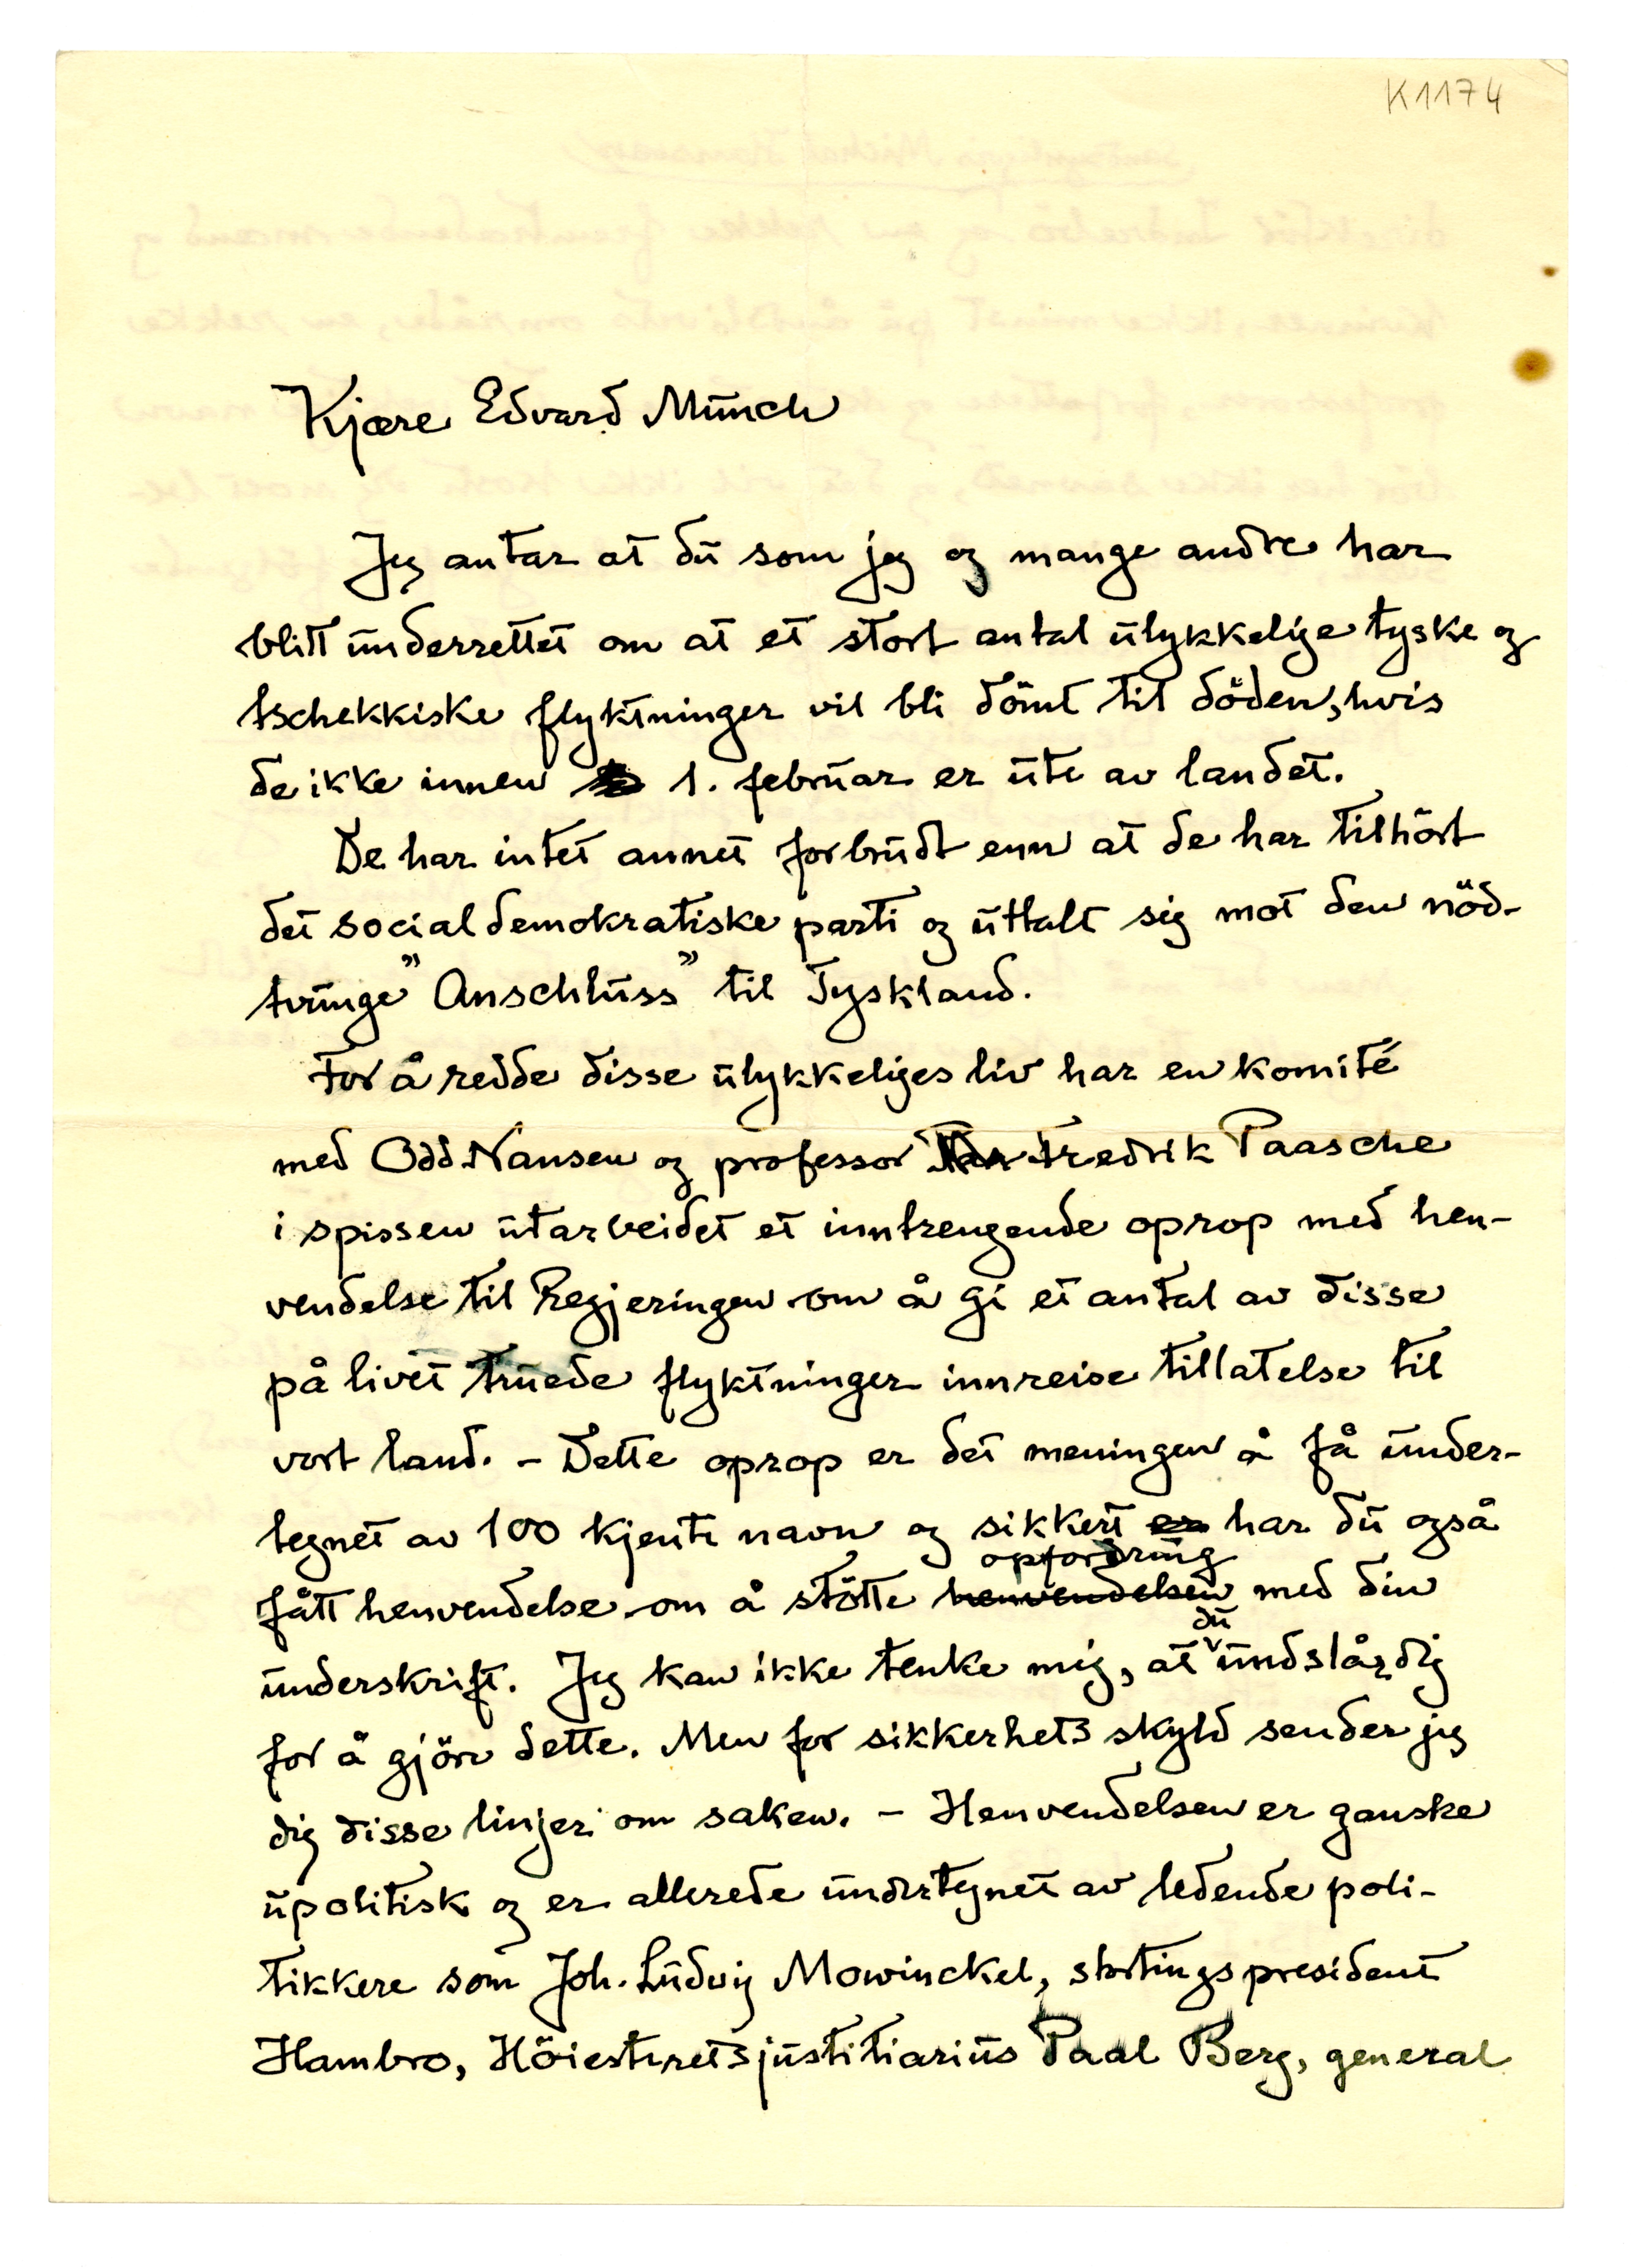 K1174
Kjære Edvard Munch
Jeg antar at du som jeg og mange andre har
blitt underrettet om at et stort antal ulykkelige tyske og
tschekkiske flyktninger vil bli dömt til döden, hvis
de ikke innen 1. februar er ute av landet.
De har intet annet forbrudt enn at de har tilhört
det socialdemokratiske parti og uttalt sig mot den nöd-
tvunge "Anschluss" til Tyskland.
For å redde disse ulykkeliges liv har en komité
med Odd Nansen og professor Fredrik Paasche
i spissen utarbeidet et inntrengende oprop med hen-
vendelse til Regjeringen om å gi et antal av disse
på livet truede flyktninger innreise tillatelse til
vort land. - Dette oprop er det meningen å få under-
tegnet av 100 kjente navn og sikkert er har du også
opfordring
fått henvendelse om å stötte henvendelsen med din
du
underskrift. Jeg kan ikke tenke mig, at undslår dig
for å gjöre dette. Men for sikkerhets skyld sender jeg
dig disse linjer om saken. - Henvendelsen er ganske
upolitisk og er allerede undertegnet av ledende poli-
tikkere som Joh. Ludvig Mowinckel, stortingspresident
Hambro, Höiesteretsjustitiarius Paal Berg, general